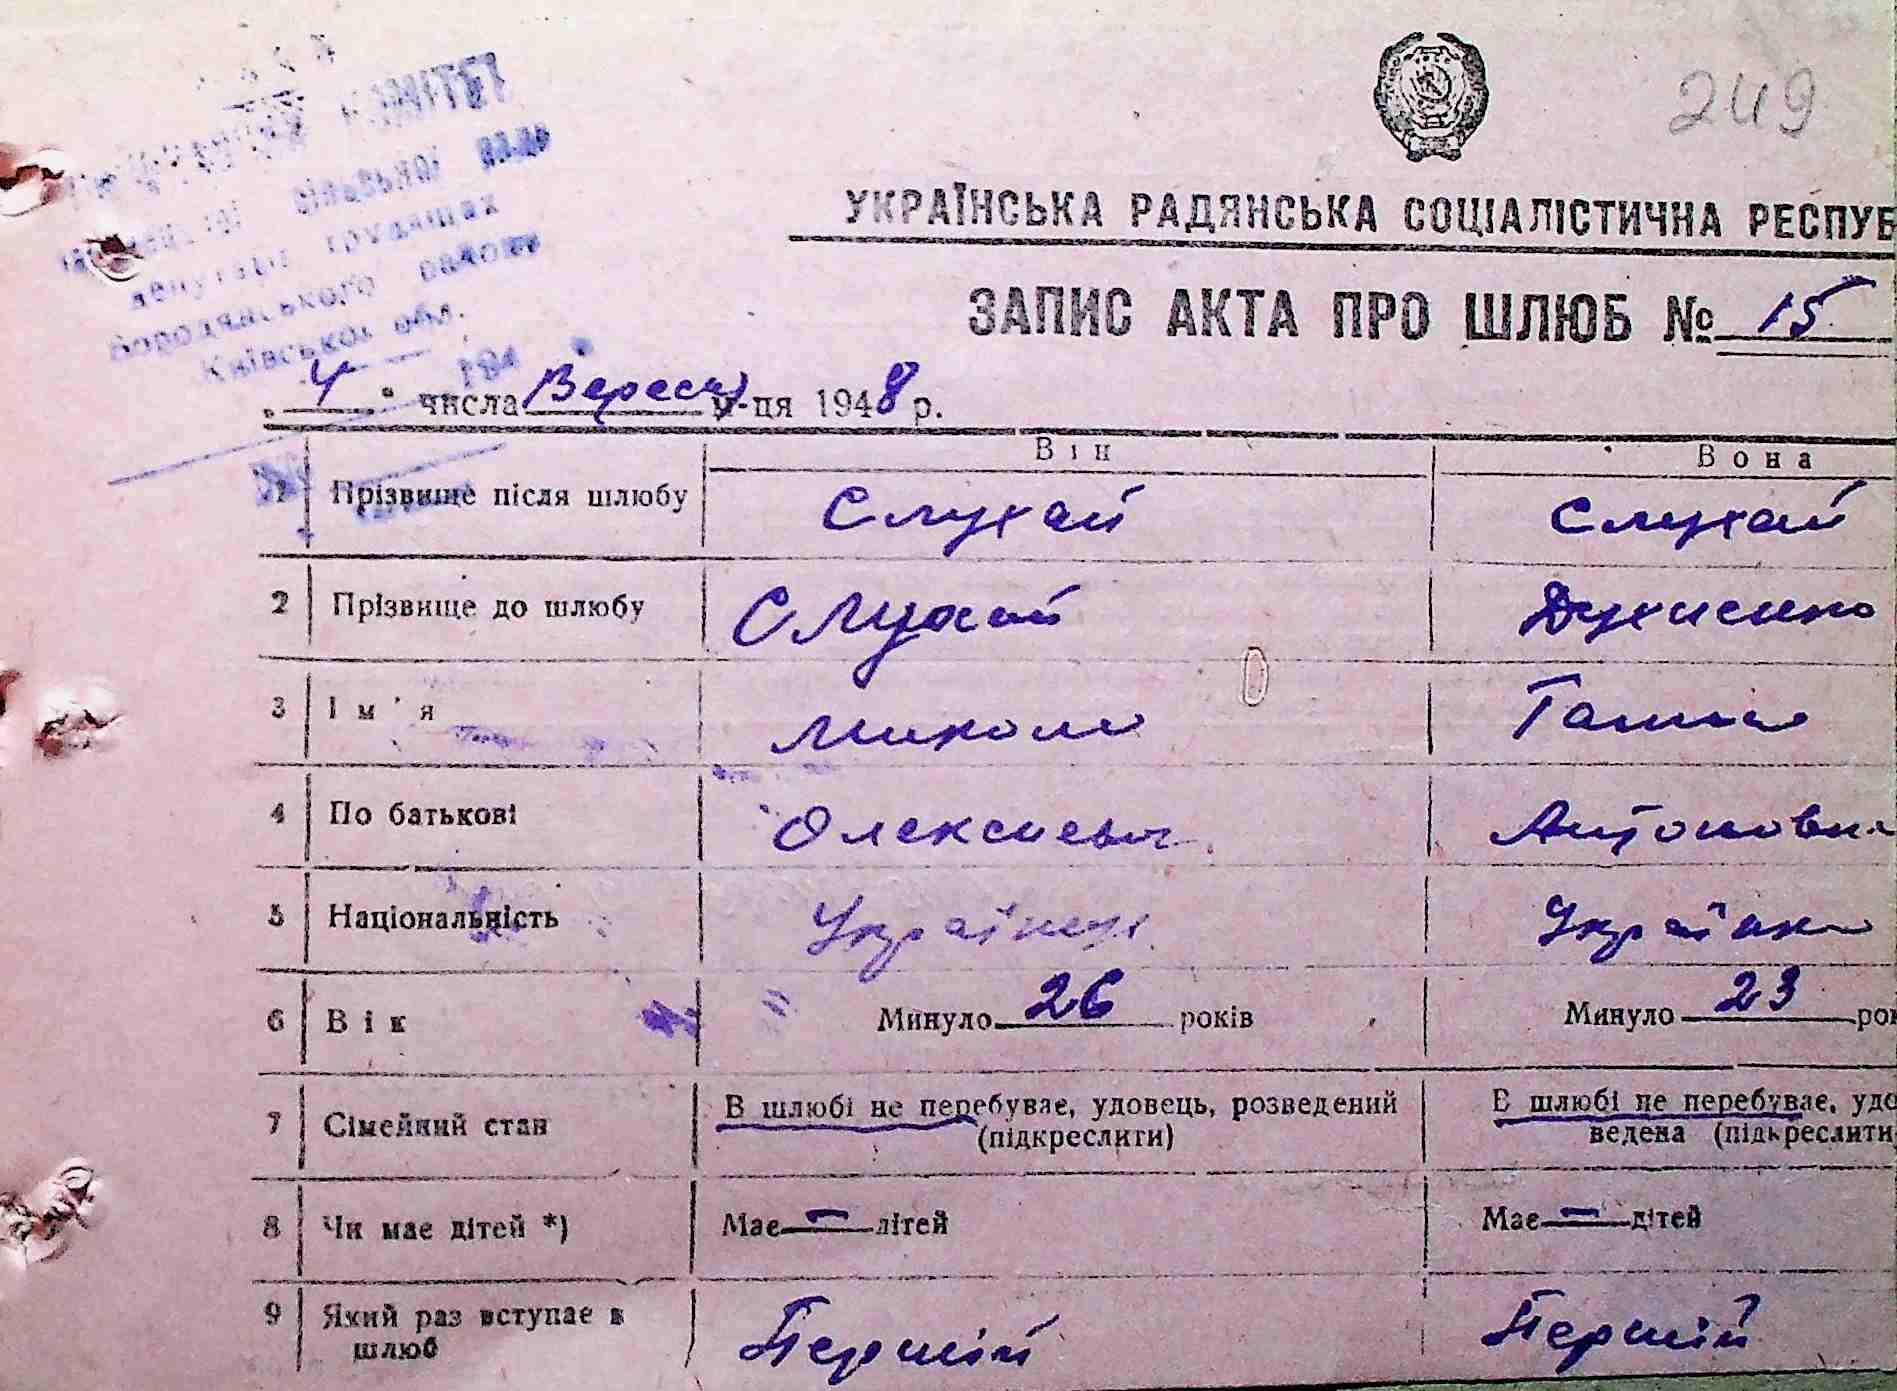 249
КОМІТЕТ
сільської ради
депутатів трудящих
Бородянського району
Київської обл.
194
УКРАЇНСЬКА РАДЯНСЬКА СОЦІАЛІСТИЧНА РЕСПУБ
ЗАПИС АКТА ПРО ШЛЮБ № 15
„ 4 " числа Вересня м-ця 1948 р.
Він Вона
1 Прізвище після шлюбу Слухай Слухай
2 Прізвище до шлюбу Слухай
3 Ім'я Микола Ганна
4 По батькові Олексиевич Антоновна
5 Національність Українец Українка
6 Вік Минуло 26 років Минуло 23 рок
7 Сімейний стан В шлюбі не перебуває, удовець, розведений В шлюбі не перебуває, удо
(підкреслити) ведена (підкреслити
8 Чи має дітей *) Має — дітей Має — дітей
9 Який раз вступає в шлюб Перший Перший